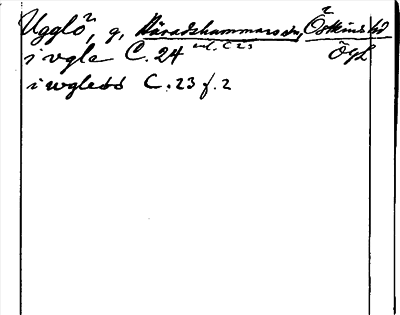 Ugglö, g, Häradshammars sn, Östkinds hd
i vgle C. 24 enl. C 23 Ögl
i wgledd C. 23 f. 2